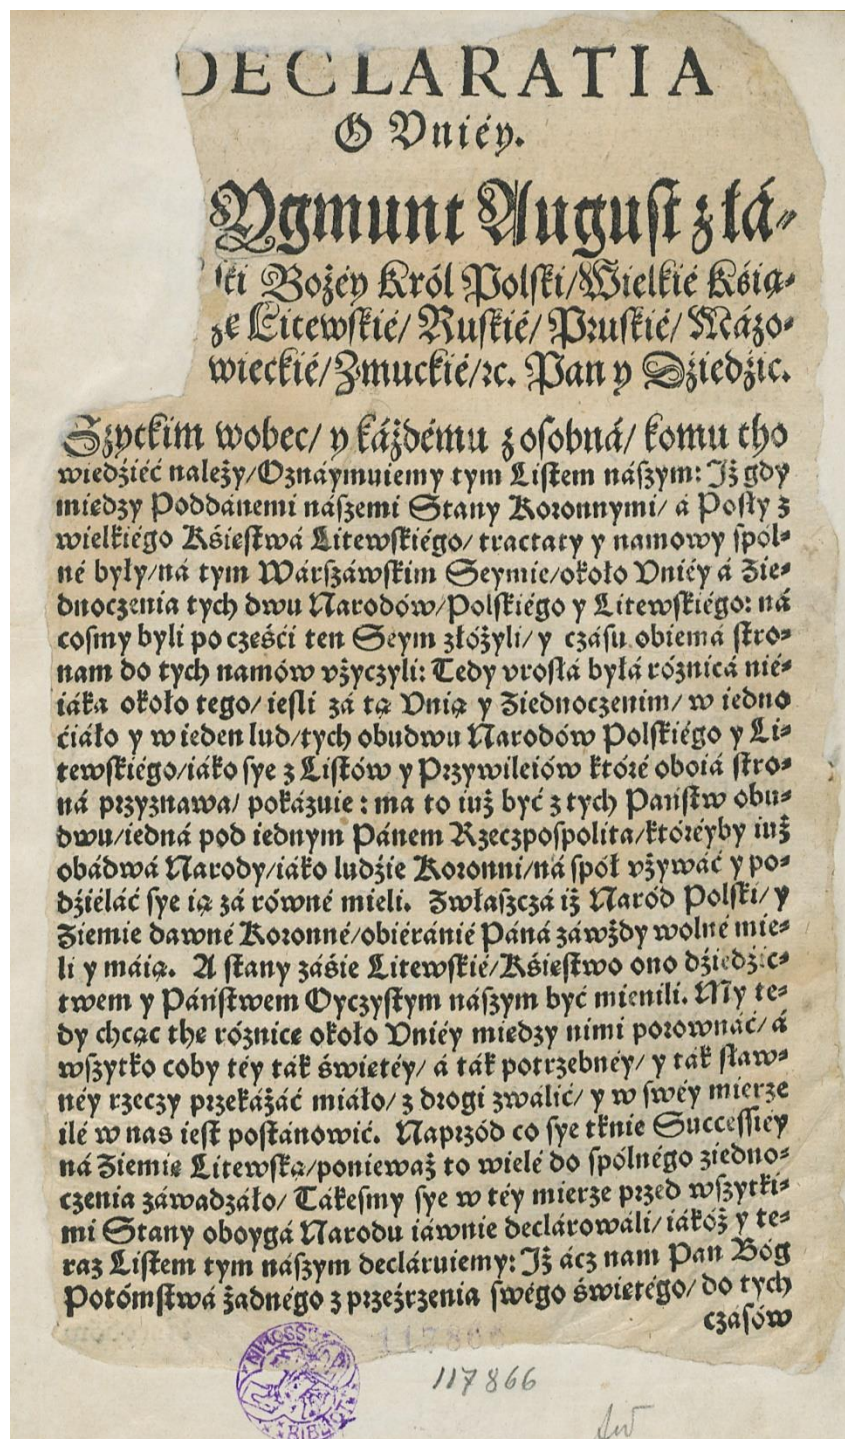 DECLARATIA
O Vniéy.
Zygmunt August z łá⸗
ski Bożéy Król Polski/Wielkié Ksią⸗
że Litewskié/ Ruskié/ Pruskié/ Mázo⸗
wieckié/Zmuckié/ꝛc. Pan y Dźiedźic.
Szyckim wobec/ y káżdému z osobná/ komu tho
wiedźiéć należy/Oznáymuiemy tym Listem nászym: Iż gdy
miedzy Poddánemi nászemi Stany Koronnymi/ á Posły z
wielkiégo Kśiestwá Litewskiégo/ tractaty y namowy spól⸗
né były/ná tym Wárszáwskim Seymie/około Vniéy á Zie⸗
dnoczenia tych dwu Narodów/Polskiégo y Litewskiégo: ná
cosmy byli po cześći ten Seym złóżyli/ y czásu obiemá stro⸗
nam do tych namów vżyczyli: Tedy vrostá byłá róznicá nié⸗
iáka około tego/ iesli zá tą Vnią y Ziednoczenim/ w iedno
ćiáło y w ieden lud/tych obudwu Narodów Polskiégo y Li⸗
tewskiégo/iáko sye z Listów y Przywileiów któré oboiá stro⸗
ná przyznawa/ pokázuie : ma to iuż być z tych Państw obu⸗
dwu/iedná pod iednym Pánem Rzeczpospolita/któréyby iuż
obádwá Narody/iáko ludźie Koronni/ná spół vżywáć y po⸗
dźiéláć sye ią zá równé mieli. Zwłaszczá iż Naród Polski/ y
Ziemie dawné Koronné/obiéránié Páná záwżdy wolné mie⸗
li y máią. A stany záśie Litewskié/Kśiestwo ono dźiedźic⸗
twem y Páństwem Oyczystym nászym być mienili. My te⸗
dy chcąc the róznice około Vniéy miedzy nimi porownáć/ á
wszytko coby téy ták świetéy/ á ták potrzebnéy/ y ták sław⸗
néy rzeczy przekáżáć miáło/ z drogi zwálić/ y w swéy mierze
ilé w nas iest postánowić. Naprzód co sye tknie Successiéy
ná Ziemię Litewską/ponieważ to wielé do spólnégo ziedno⸗
czenia záwadzáło/ Tákesmy sye w téy mierze przed wszytki⸗
mi Stany oboygá Narodu iáwnie declárowáli/ iákóż y te⸗
raz Listem tym nászym decláruiemy: Iż ácz nam Pan Bóg
Potómstwá żadnégo z przeźrzenia swégo świetégo/ do tych
czasów
117866
117866